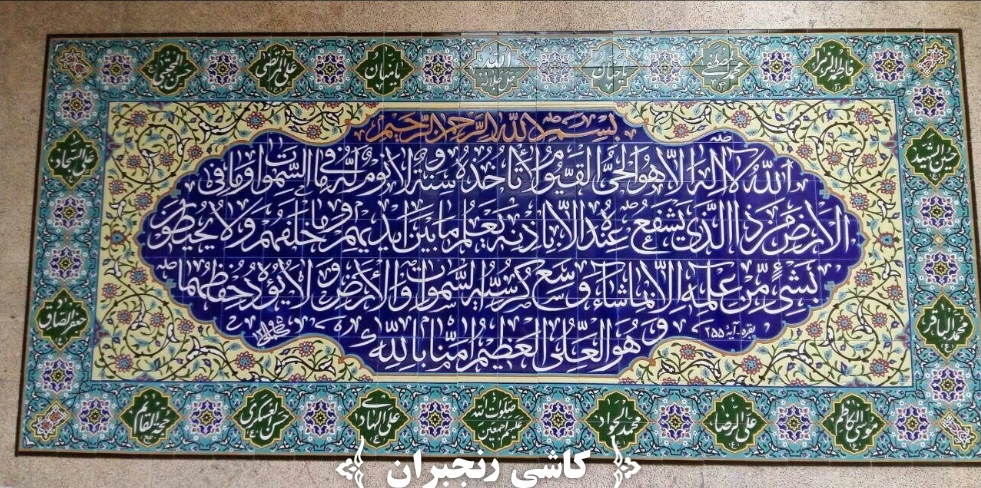 فاطمة الزهرا محمد مصطفی یا حنان الله جل جلاله یا منان علی المرتضی حسن المجتبی
بسم الله الرحمن الرحیم
حسین الشهید
علی السجاد
الله لا اله الا هو الحی القیوم لا تأخذه سنة و لا نوم له ما فی السموات و ما فی
الارض من ذا الذی یشفع عنده الا باذنه یعلم ما بین ایدیهم و ما خلفهم و لا یحیطون
بشیء من علمه الا بما شاء وسع کرسیه السموات و الارض و لا یؤده حفظهما
و هو العلی العظیم امنا بالله
بقره - آیة ۲۵۵
محمد الباقر
جعفر الصادق
موسی الکاظم علی الرضا محمد الجواد صلوات الله علیهم اجمعین علی الهادی حسن العسکری محمد القائم
کاشی رنجبران